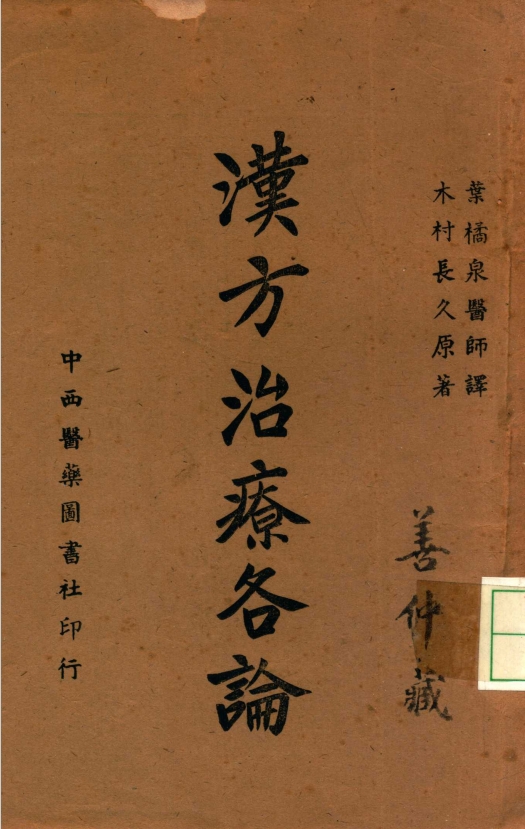 葉橘泉醫師譯
木村長久原著
漢方治療各論
中西醫藥圖書社印行
善仲藏